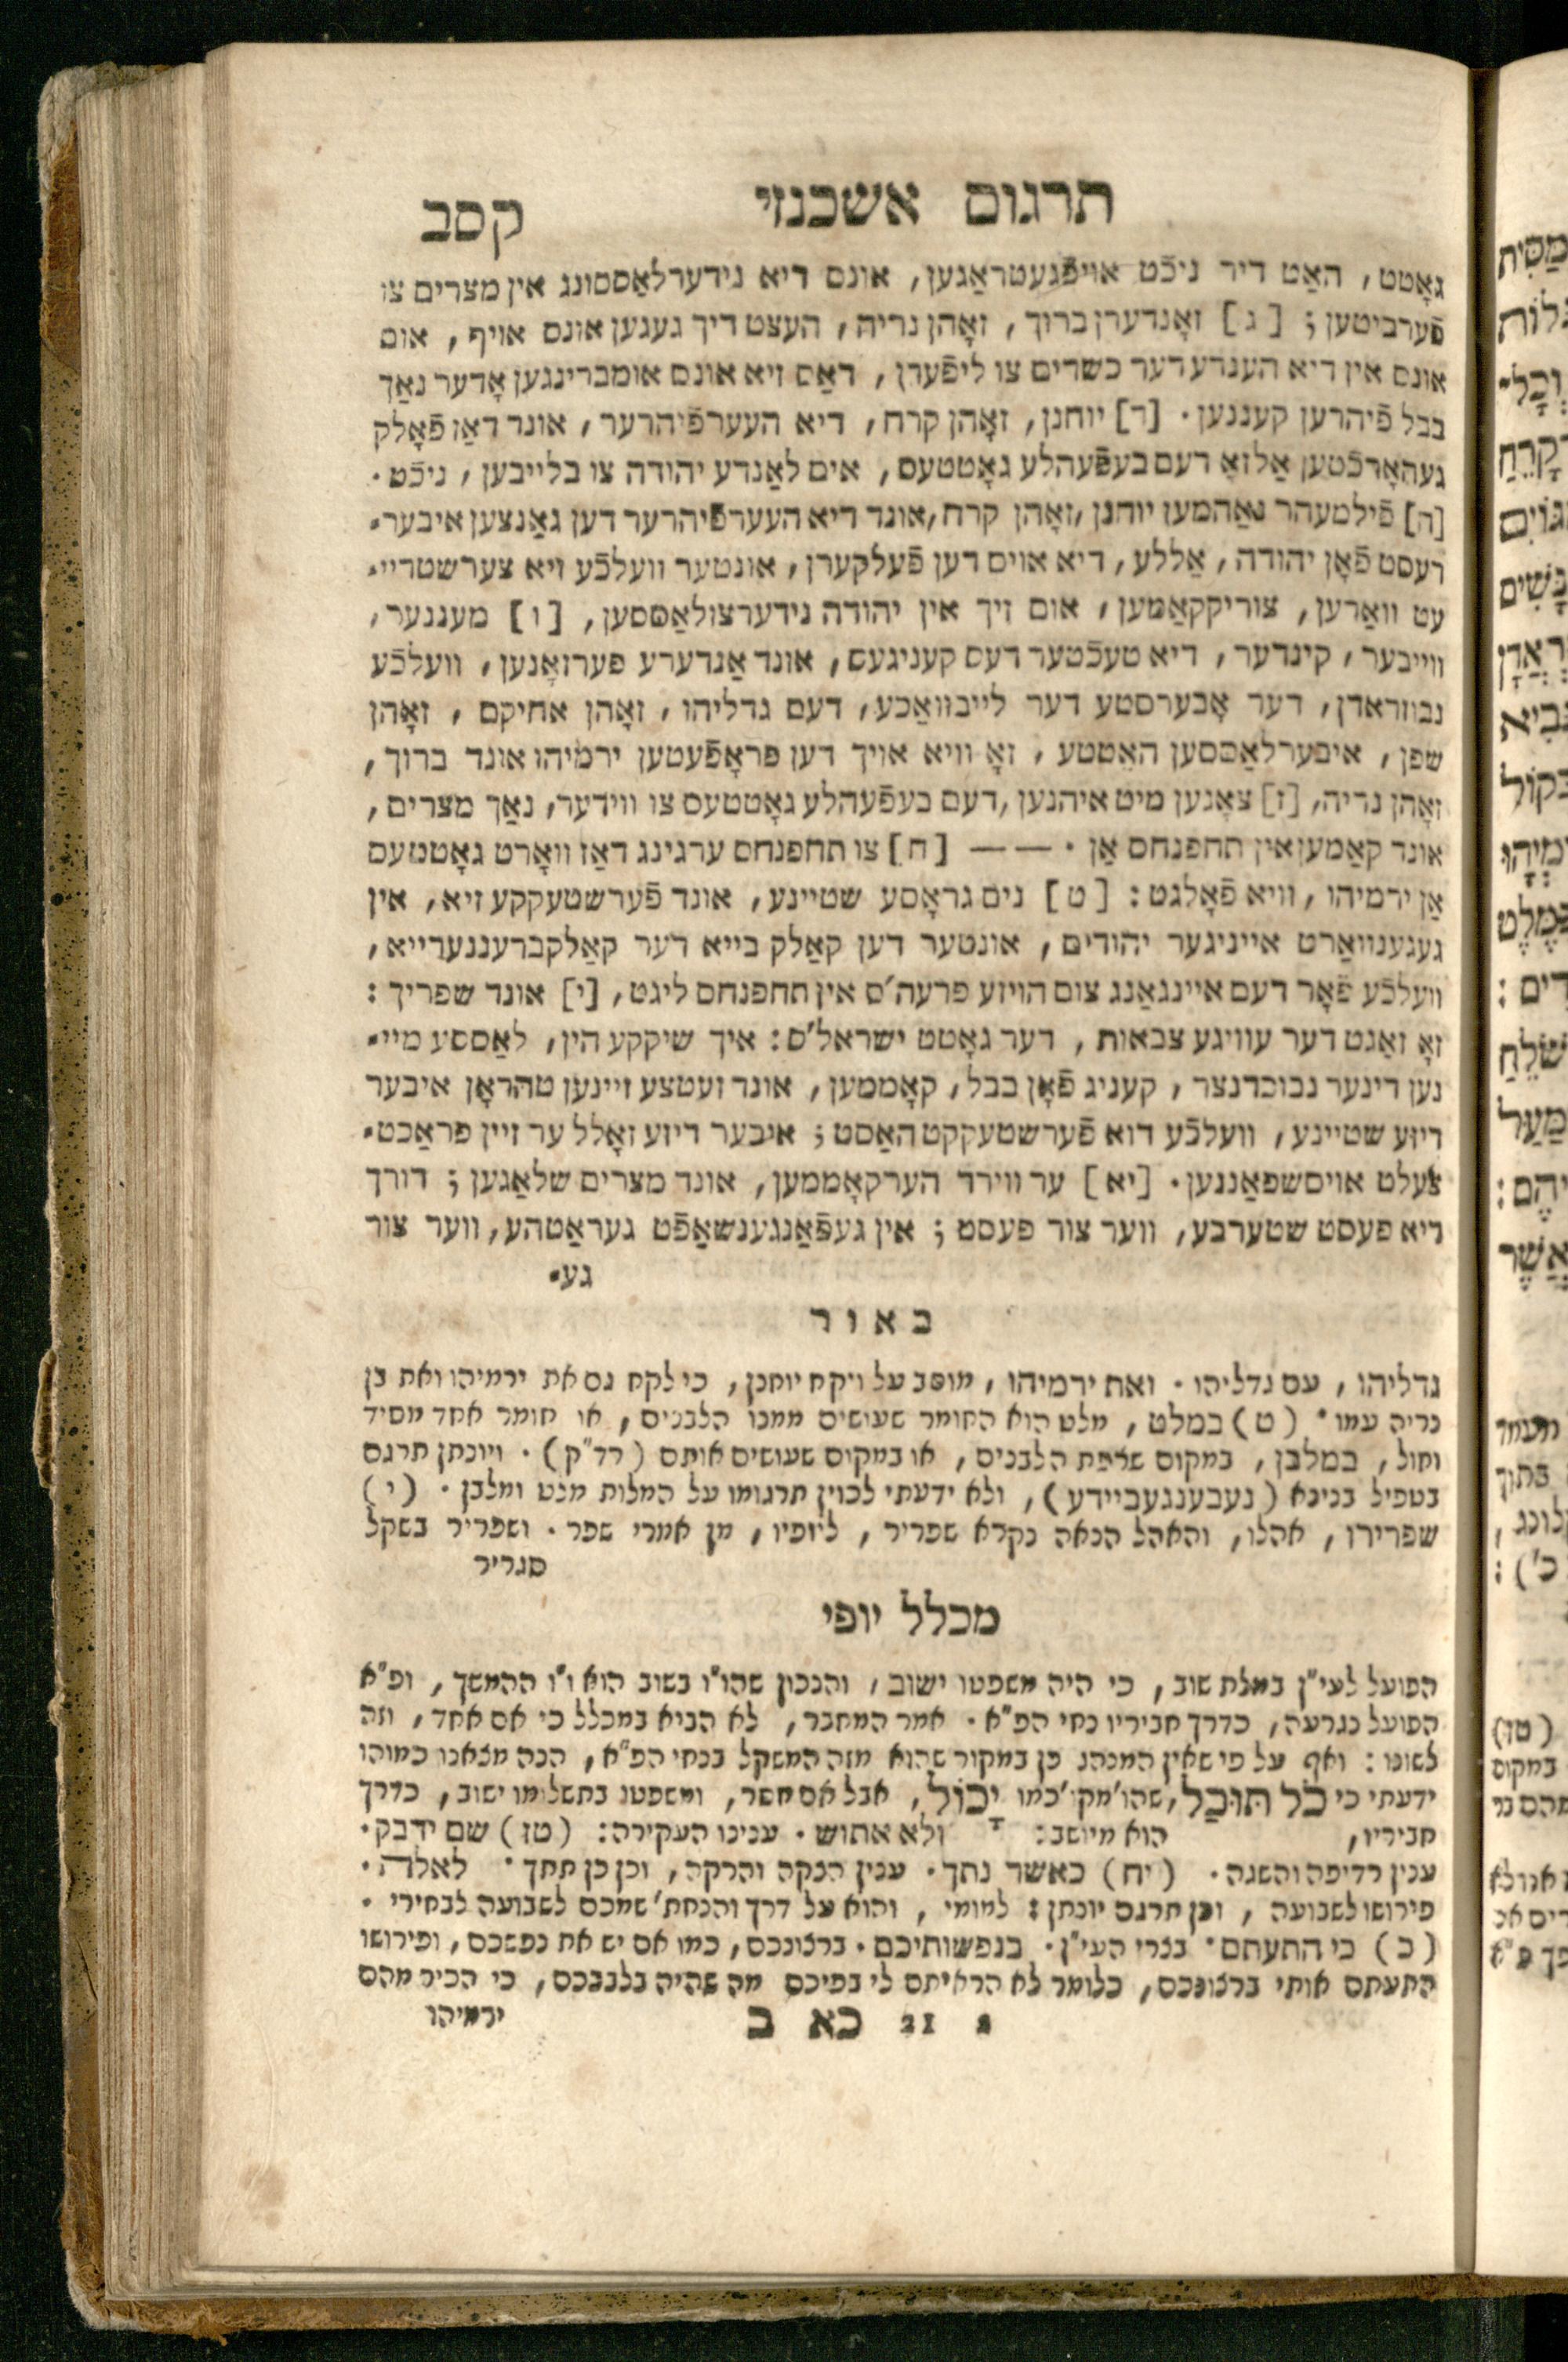 תרגום אשכנזי
קסב
גאָטט, האַט דיר ניכֿט אויפֿגעטראַגען, אונס דיא נידערלאַססונג אין מצרים צו
פֿערביטען; [ג] זאָנדערן ברוך, זאָהן נריה, העצט דיך געגען אונס אויף, אום
אונס אין דיא הענדע דער כשדים צו ליפֿערן, דאַס זיא אונס אומברינגען אָדער נאַך
בבל פֿיהרען קעננען. [ד] יוחנן, זאָהן קרח, דיא העערפֿיהרער, אונד דאַז פֿאָלק
געהאָרכֿטען אַלזאָ דעם בעפֿעהלע גאָטטעס, אים לאַנדע יהודה צו בלייבען, ניכֿט.
[ה] פֿילמעהר נאַהמען יוחנן, זאָהן קרח, אונד דיא העערפֿיהרער דען גאַנצען איבער-
רעסט פֿאָן יהודה, אַללע, דיא אויס דען פֿעלקערן, אונטער וועלכֿע זיא צערשטריי-
עט וואַרען, צוריקקאַמען, אום זיך אין יהודה נידערצולאַססען, [ו] מעננער,
ווייבער, קינדער, דיא טעכֿטער דעס קעניגעס, אונד אַנדערע פערזאָנען, וועלכֿע
נבוזראדן, דער אָבערסטע דער לייבוואַכע, דעם גדליהו, זאָהן אחיקם, זאָהן
שפן, איבערלאַססען האַטטע, זאָ וויא אויך דען פּראָפֿעטען ירמיהו אונד ברוך,
זאָהן נריה, [ז] צאָגען מיט איהנען, דעם בעפֿעהלע גאָטטעס צו ווידער, נאַך מצרים,
אונד קאַמען אין תחפנחס אַן. —— [ח] צו תחפנחס ערגינג דאַז וואָרט גאָטטעס
אַן ירמיהו, וויא פֿאָלגט: [ט] נים גראָסע שטיינע, אונד פֿערשטעקקע זיא, אין
געגענוואַרט אייניגער יהודים, אונטער דען קאַלק בייא דער קאַלקברעננערייא,
וועלכֿע פֿאָר דעם איינגאַנג צום הויזע פרעה'ס אין תחפנחס ליגט, [י] אונד שפריך:
זאָ זאַגט דער עוויגע צבאות, דער גאָטט ישראל'ס: איך שיקקע הין, לאַססע מיי-
נען דינער נבוכדנצר, קעניג פֿאָן בבל, קאָממען, אונד זעטצע זיינען טהראָן איבער
דיזע שטיינע, וועלכֿע דוא פֿערשטעקקט האַסט; איבער דיזע זאָלל ער זיין פראַכט-
צעלט אויסשפאַננען. [יא] ער ווירד הערקאָממען, אונד מצרים שלאַגען; דורך
דיא פעסט שטערבע, ווער צור פעסט; אין געפֿאַנגענשאַפֿט געראַטהע, ווער צור
גע-
באור
גדליהו, עם גדליהו. ואת ירמיהו, מוסב על ויקח יוחנן, כי לקח גם את ירמיהו ואת בן
נריה עמו. (ט) במלט, מלט הוא החומר שעושים ממנו הלבנים, או חומר אחד מסיד
וחול, במלבן, במקום שרפת הלבנים, או במקום שעושים אותם (רד"ק). ויונתן תרגם
בטפיל בנינא (נעבענגעביידע), ולא ידעתי לכוין תרגומו על המלות מלט ומלבן. (י)
שפרירו, אהלו, והאהל הנאה נקרא שפריר, ליופיו, מן אמרי שפר. ושפריר בשקל
סגריר
מכלל יופי
הפועל לעי"ן במלת שוב, כי היה משפטו ישוב, והנכון שהו"ו בשוב הוא ו"ו ההמשך, ופ"א
הפועל נגרעה, כדרך חביריו נחי הפ"א. אמר המחבר, לא הביא במכלל כי אם אחד, וזה
לשונו: ואף על פי שאין המנהג כן במקור שהוא מזה המשקל בנחי הפ"א, הנה מצאנו כמוהו
ידעתי כי כֹל תוּכַל, שהו'מקו'כמו יָכוֹל, אבל אם חסר, ומשפטנ בתשלומו ישוב, כדרך
חביריו, הוא מיושב: ולא אתוש. ענינו העקירה: (טז) שם ידבק.
ענין רדיפה והשגה. (יח) כאשר נתך. ענין הנקה והרקה, וכן כן תתך. לאלה.
פירושו לשבועה, וכן תרגם יונתן: למומי, והוא על דרך והנחת' שמכם לשבועה לבחירי.
(כ) כי התעתם. בצרי העי"ן. בנפשותיכם. ברצונכם, כמו אם יש את נפשכם, ופירושו
התעתם אותי ברצונכם, כלומר לא הראיתם לי בפיכם מה שהיה בלבבכם, כי הכיר מהם
21 כא ב
ירמיהו